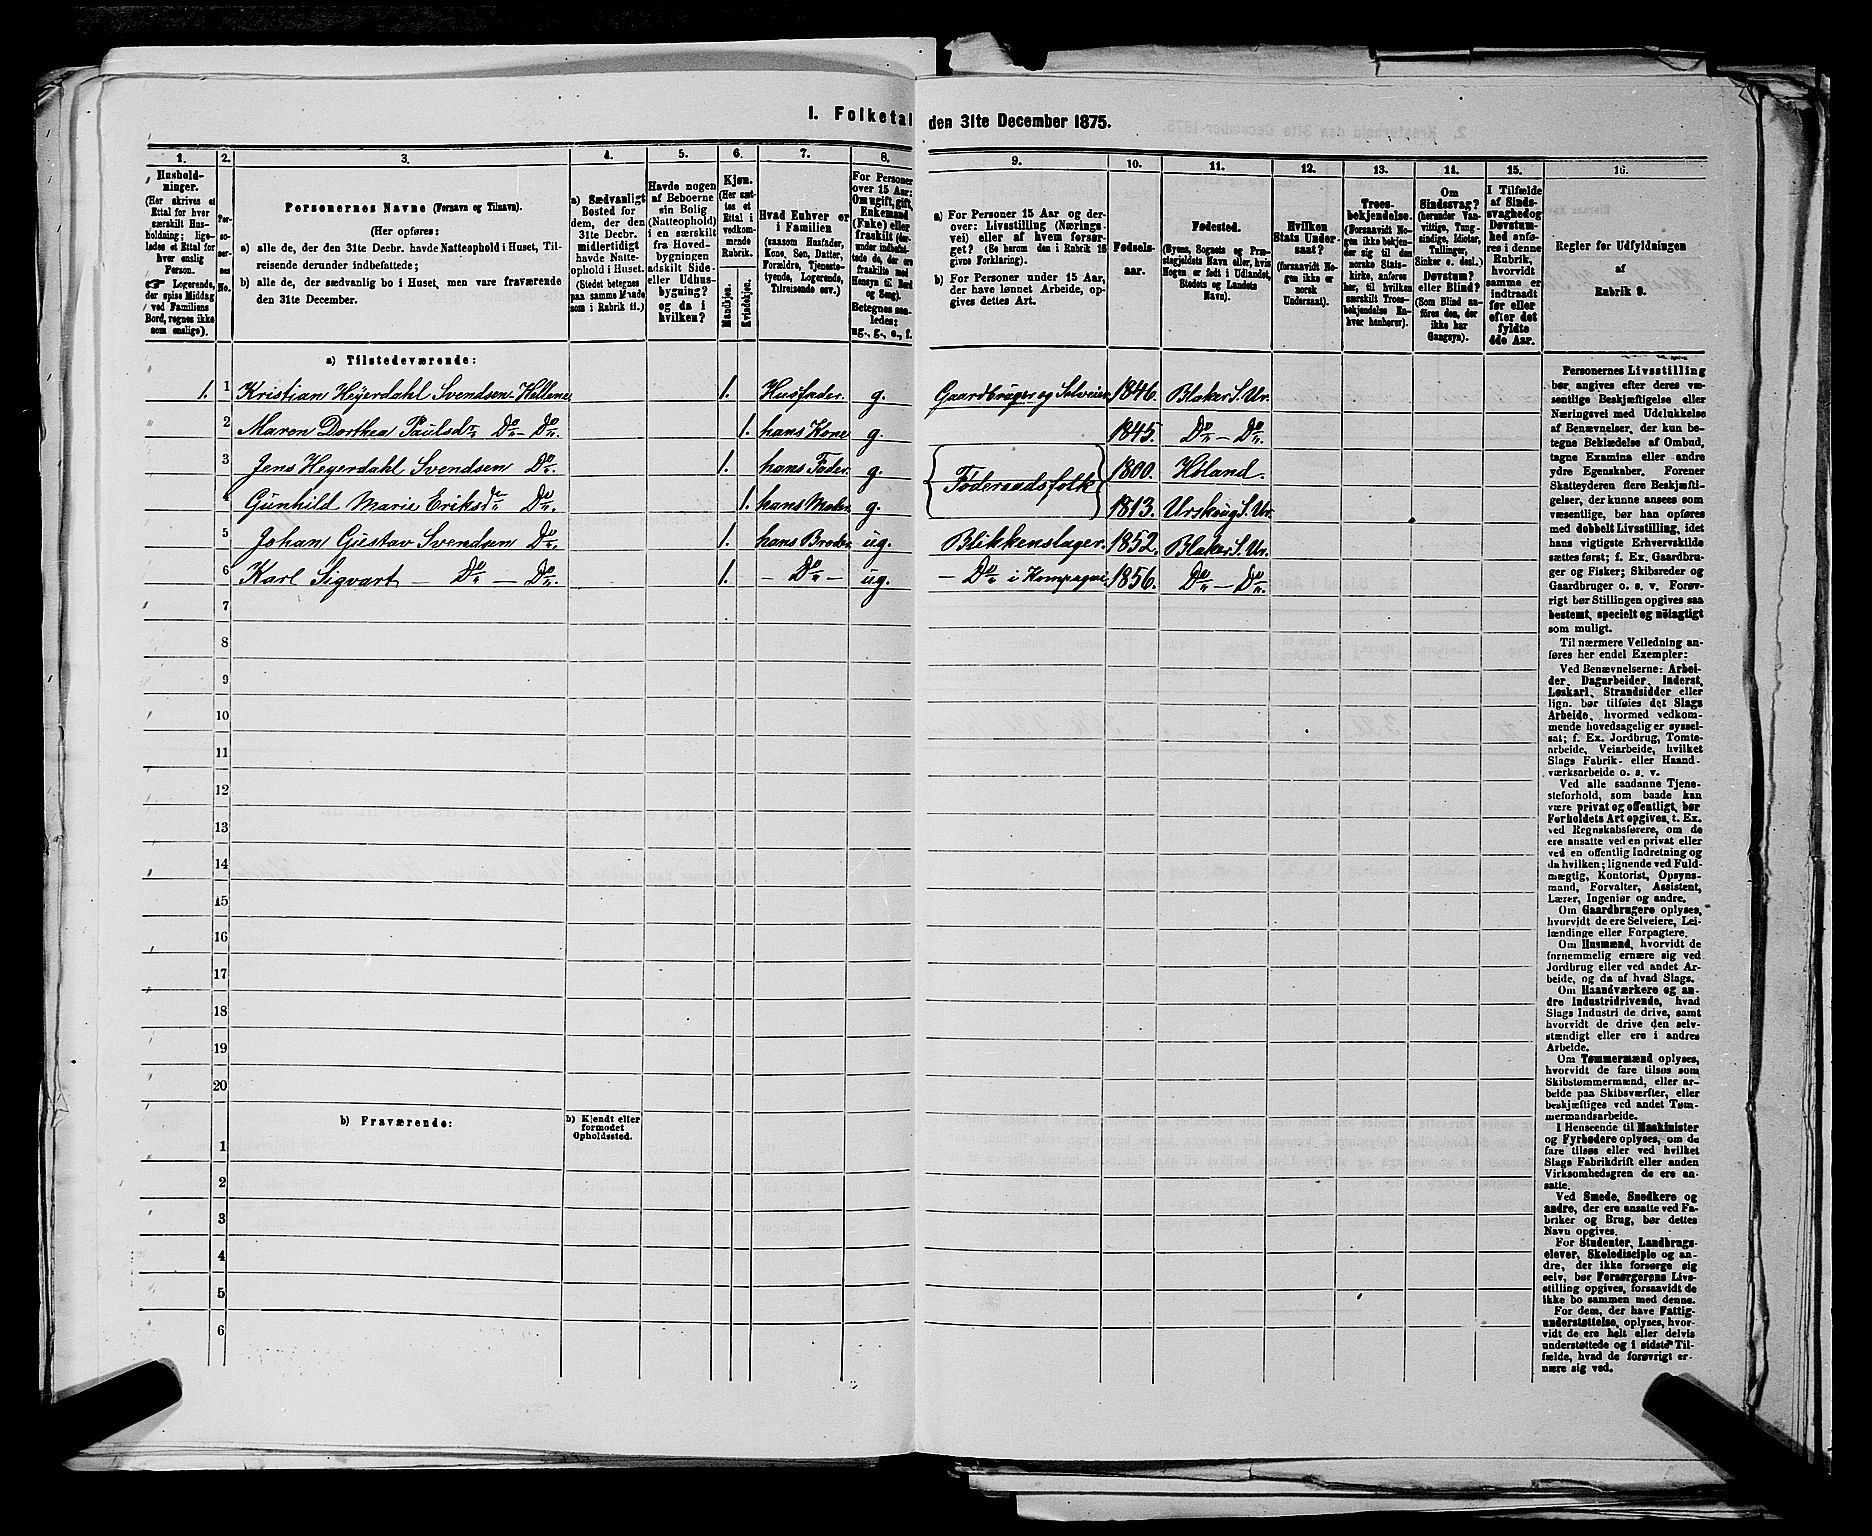 1. Folketal den 31te December 1875.
1. 2. 3. 4. 5. 6. 7. 8. 9. 10. 11. 12. 13. 14. 15. 16.
Hushold-
ninger.
(Her skrives et
Ettal for hver
særskilt Hus-
holdning; lige-
ledes et Ettal for
hver enslig
Person.
☞ Logerende,
der spise Middag
ved Familiens
Bord, regnes ikke
som enslige).
Per-
so-
ner-
nes
No.
Personernes Navne (Fornavn og Tilnavn).
(Her opføres:
a) alle de, der den 31te Decbr. havde Natteophold i Huset, Til-
reisende derunder indbefattede;
b) alle de, der sædvanlig bo i Huset, men vare fraværende
den 31te December.
a) Sædvanligt
Bosted for
dem, der den
31te Decbr.
midlertidigt
havde Natte-
ophold i Huset.
(Stedet betegnes
paa samme Maade
som i Rubrik 11.)
Havde nogen
af Beboerne
sin Bolig
(Natteophold)
i en særskilt
fra Hoved-
bygningen
adskilt Side-
eller Udhus-
bygning?
og da i
hvilken?
Kjøn.
(Her sæt-
tes et
Ettal i
vedkom-
mende
Rubrik.
Mandkjøn.
Kvindekjøn.
Hvad Enhver er
i Familien
(saasom Husfader,
Kone, Søn, Datter,
Forældre, Tjeneste-
tyende, Logerende,
Tilreisende osv.)
For Personer
over 15 Aar:
Om ugift, gift,
Enkemand
(Enke) eller
fraskilt (der-
under indbefat-
tede de, der ere
fraskilte med
Hensyn til Bord
og Seng).
Betegnes saa-
ledes:
ug., g., e., f.
a) For Personer 15 Aar og der-
over: Livsstilling (Nærings-
vei) eller af hvem forsør-
get? (Se herom den i Rubrik 16
givne Forklaring).
b) For Personer under 15 Aar,
der have lønnet Arbeide, op-
gives dettes Art.
Fødsels-
aar.
Fødested.
(Byens, Sognets og Præ-
stegjeldets Navn eller, hvis
Nogen er født i Udlandet,
Stedets og Landets
Navn).
Hvilken
Stats Under-
saat?
(forsaavidt No-
gen ikke er
norsk
Undersaat).
Troes-
bekjendelse.
(Forsaavidt No-
gen ikke bekjen-
der sig til den
norske Stats-
kirke, anføres
her, til hvilken
særskilt Troes-
bekjendelse En-
hver henhører).
Om
Sindssvag?
(herunder Van-
vittige, Tung-
sindige, Idioter,
Tullinger,
Sinker o. desl.)
Døvstum?
eller Blind?
(Som Blind an-
føres den, der
ikke har
Gangsyn).
I Tilfælde
af Sinds-
svaghed og
Døvstum-
hed anfø-
res i denne
Rubrik,
hvorvidt
samme er
indtraadt
før eller
efter det
fyldte
4de Aar.
Regler for Udfyldningen
af
Rubrik 9.
a) Tilstedeværende:
1. 1 Kristian Heyerdahl Svendsen-Hellene 1. Husfader. g. Gaardbruger og Selveier 1846. Blaker S. Ur.
2 Maren Dorthea Paulsdtr Do - Do. 1. hans Kone g. 1845. Do - Do.
3 Jens Heyerdahl Svendsen Do. 1. hans Fader. g. Føderaadsfolk 1800. Høland.
4 Gunhild Marie Eriksdtr Do. 1. hans Moder. g. 1813. Urskoug S. Ur.
5 Johan Gustav Svendsen Do. 1. hans Broder. ug. Blikkenslager. 1852. Blaker S. Ur.
6 Karl Sigvart - Do - Do. 1. - Do - ug. - Do i Kompagni. 1856. Do - Do.
7
8
9
10
11
12
13
14
15
16
17
18
19
20
b) Fraværende:
b) Kjendt eller
formodet
Opholdssted.
1
2
3
4
5
6
Personernes Livsstilling
bør angives efter deres væ-
sentlige Beskjæftigelse eller
Næringsvei med Udelukkelse
af Benævnelser, der kun be-
tegne Beklædelse af Ombud,
tagne Examina eller andre
ydre Egenskaber. Forener
Skatteyderen flere Beskjæfti-
gelser, der kunne ansees som
væsentlige, bør han opføres
med dobbelt Livsstilling, idet
hans vigtigste Erhvervskilde
sættes først; f. Ex. Gaardbru-
ger og Fisker; Skibsreder og
Gaardbruger o. s. v. Forøv-
rigt bør Stillingen opgives saa
bestemt, specielt og nøiagtigt
som muligt.
Til nærmere Veiledning an-
føres her endel Exempler:
Ved Benævnelserne: Arbei-
der, Dagarbeider, Inderst,
Løskarl, Strandsidder eller
lign. bør tilføies det Slags
Arbeide, hvormed vedkom-
mende hovedsagelig er syssel-
sat; f. Ex. Jordbrug, Tomte-
arbeide, Veiarbeide, hvilket
Slags Fabrik- eller Haand-
værksarbeide o. s. v.
Ved alle saadanne Tjene-
steforhold, som baade kan
være privat og offentligt, bør
Forholdets Art opgives, t. Ex.
ved Regnskabsførere, om de
ere ansatte ved en privat eller
ved en offentlig Indretning og
da hvilken; lignende ved Fuld-
mægtig, Kontorist, Opsyns-
mand, Forvalter, Assistent,
Lærer, Ingeniør og andre.
Om Gaardbrugere oplyses,
hvorvidt de ere Selveiere, Lei-
lændinge eller Forpagtere.
Om Husmænd, hvorvidt de
fornemmelig ernære sig ved
Jordbrug eller ved andet Ar-
beide, og da af hvad Slags.
Om Haandværkere og an-
dre Industridrivende, hvad
Slags Industri de drive, samt
hvorvidt de drive den selv-
stændigt eller ere i andres
Arbeide.
Om Tømmermænd oplyses,
hvorvidt de fare tilsøs som
Skibstømmermænd, eller ar-
beide paa Skibsværfter, eller
beskjæftiges ved andet Tøm-
mermandsarbeide.
I Henseende til Maskinister
og Fyrbødere oplyses, om de
fare tilsøs eller ved hvilket
Slags Fabrikdrift eller anden
Virksomhedsgren de ere an-
satte.
Ved Smede, Snedkere og
andre, der ere ansatte ved Fa-
briker og Brug, bør dettes
Navn opgives.
For Studenter, Landbrugs-
elever, Skoledisciple og an-
dre, der ikke forsørge sig
selv, bør Forsørgerens Livs-
stilling opgives, forsaavidt de
ikke bo sammen med denne.
For dem, der have Fattig-
understøttelse, oplyses, hvor-
vidt de ere helt eller delvis
understøttede og i sidste Til-
fælde, hvad de forøvrigt er-
nære sig ved.